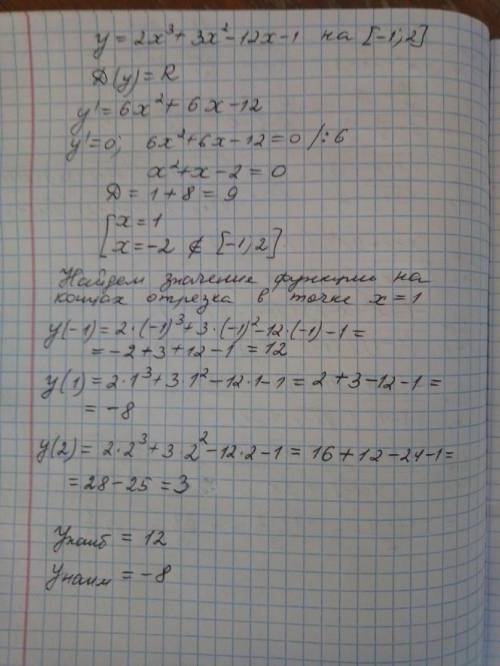 y = 2x³ + 3x² - 12x - 1 на [-1; 2]
D(y) = R
y' = 6x² + 6x - 12
y' = 0; 6x² + 6x - 12 = 0 /:6
x² + x - 2 = 0
D = 1 + 8 = 9
[x = 1
x = -2 ∉ [-1; 2]
Найдем значение функции на
концах отрезка в точке x = 1
y(-1) = 2·(-1)³ + 3·(-1)² - 12·(-1) - 1 =
= -2 + 3 + 12 - 1 = 12
y(1) = 2·1³ + 3·1² - 12·1 - 1 = 2 + 3 - 12 - 1 =
= -8
y(2) = 2·2³ + 3·2² - 12·2 - 1 = 16 + 12 - 24 - 1 =
= 28 - 25 = 3
yнаиб = 12
yнаим = -8